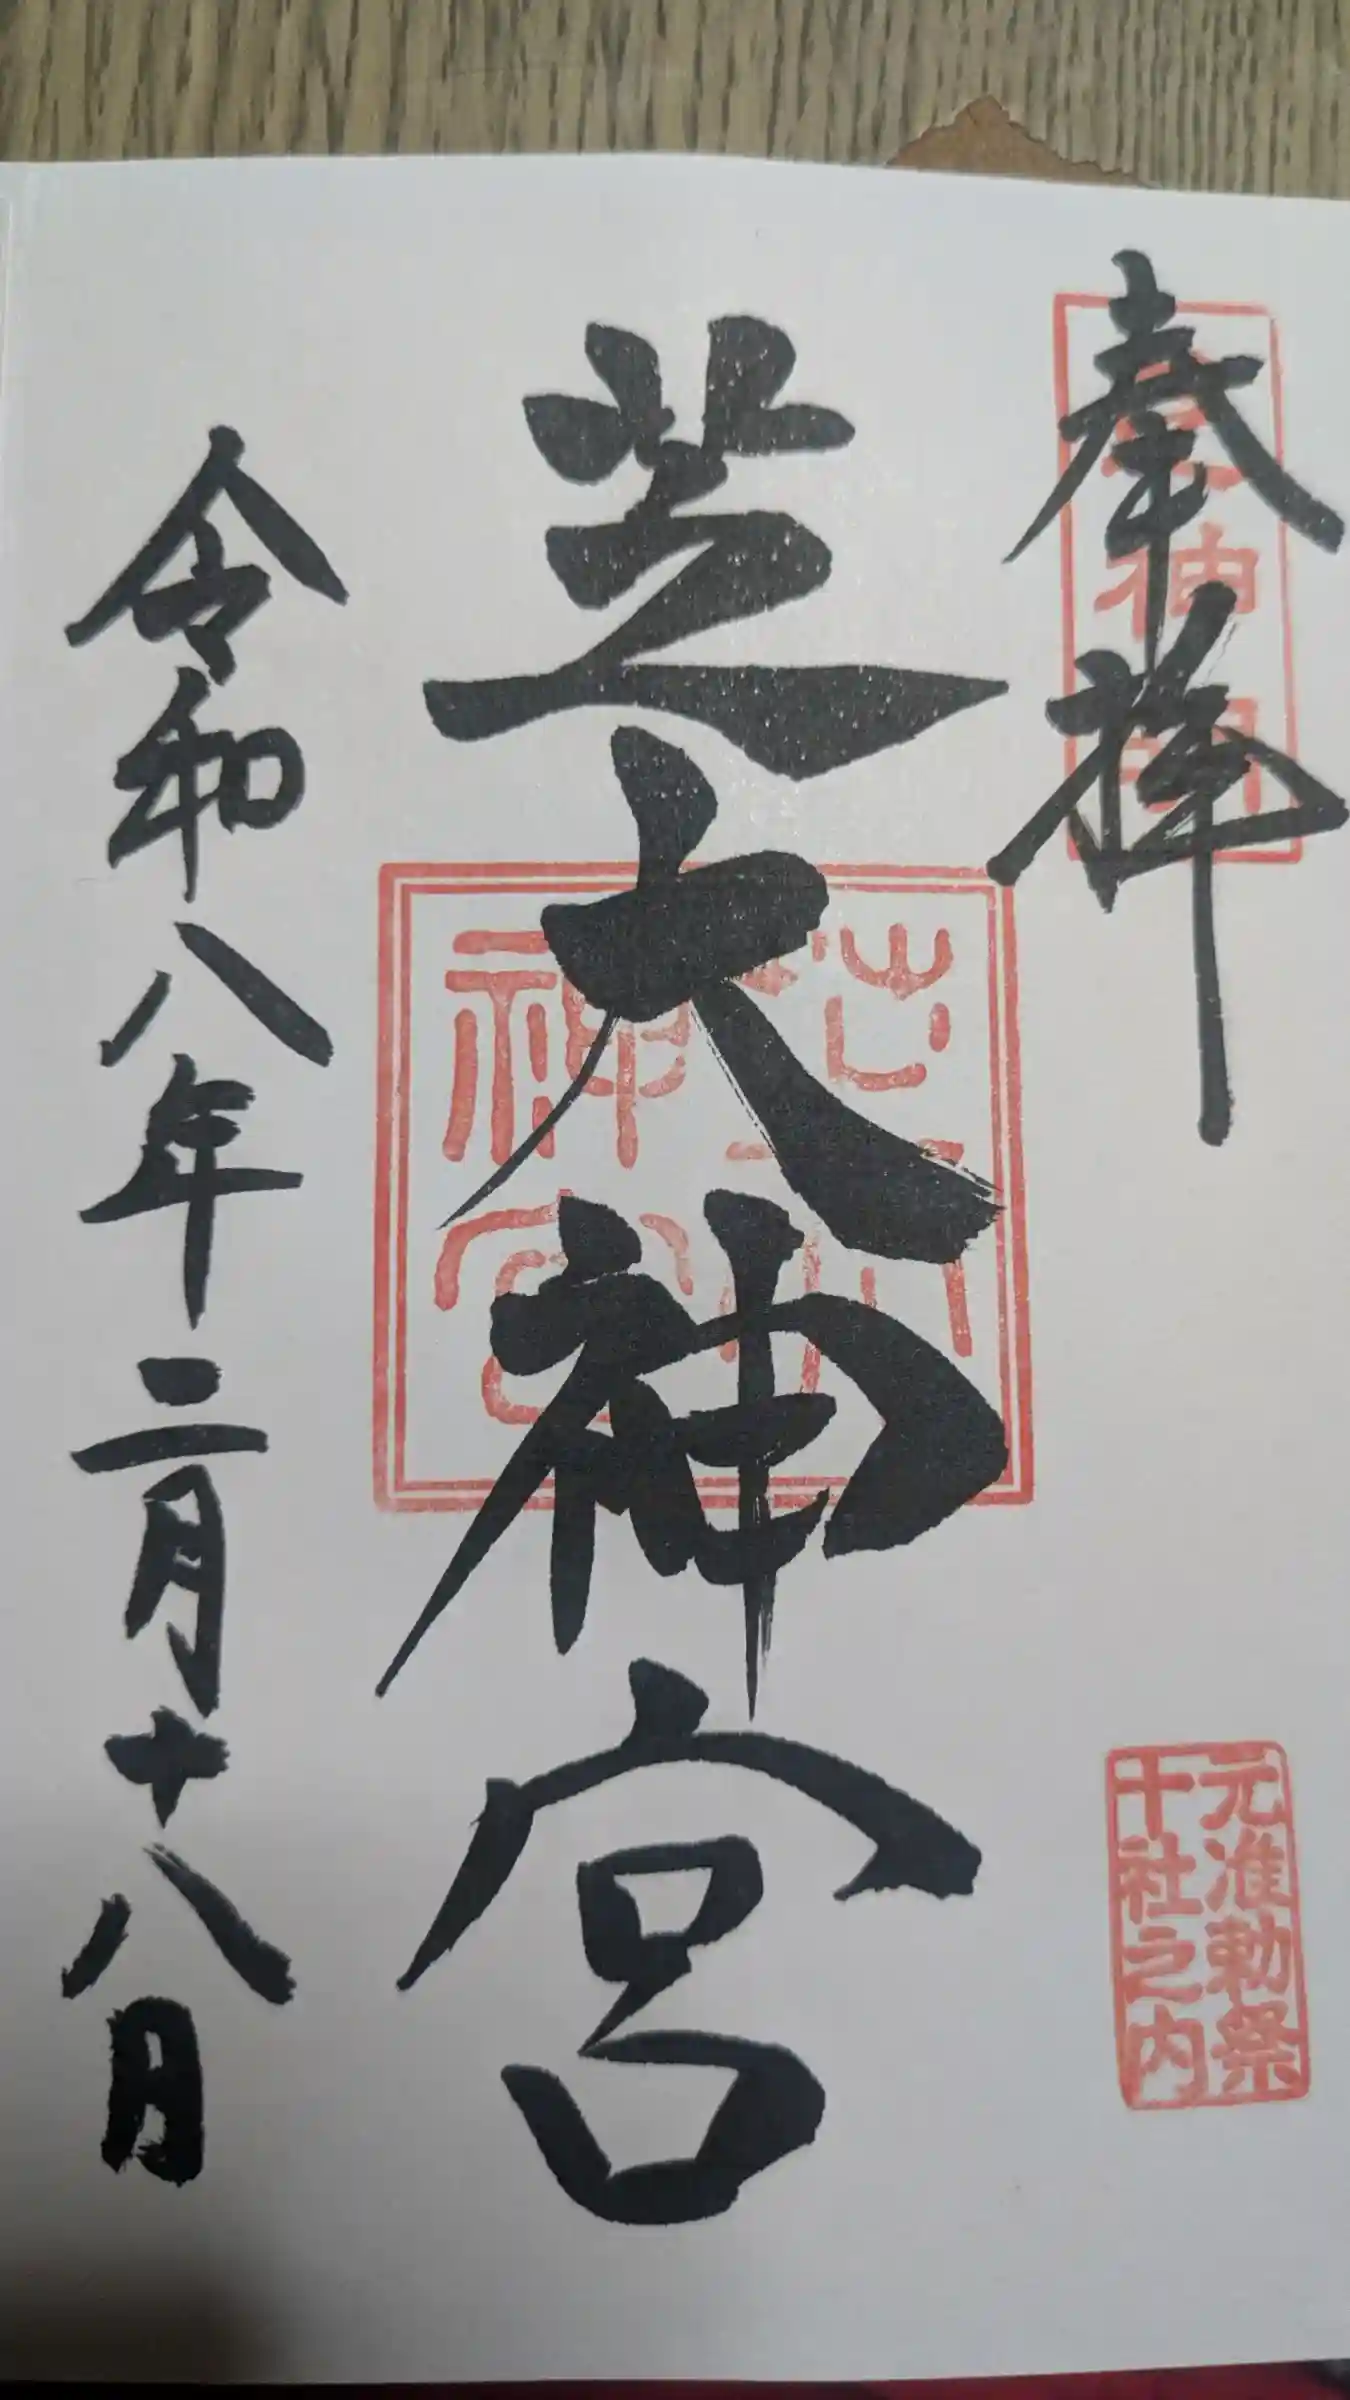 奉拝
元准勅祭
十社之内
芝大神宮
令和八年二月十八日